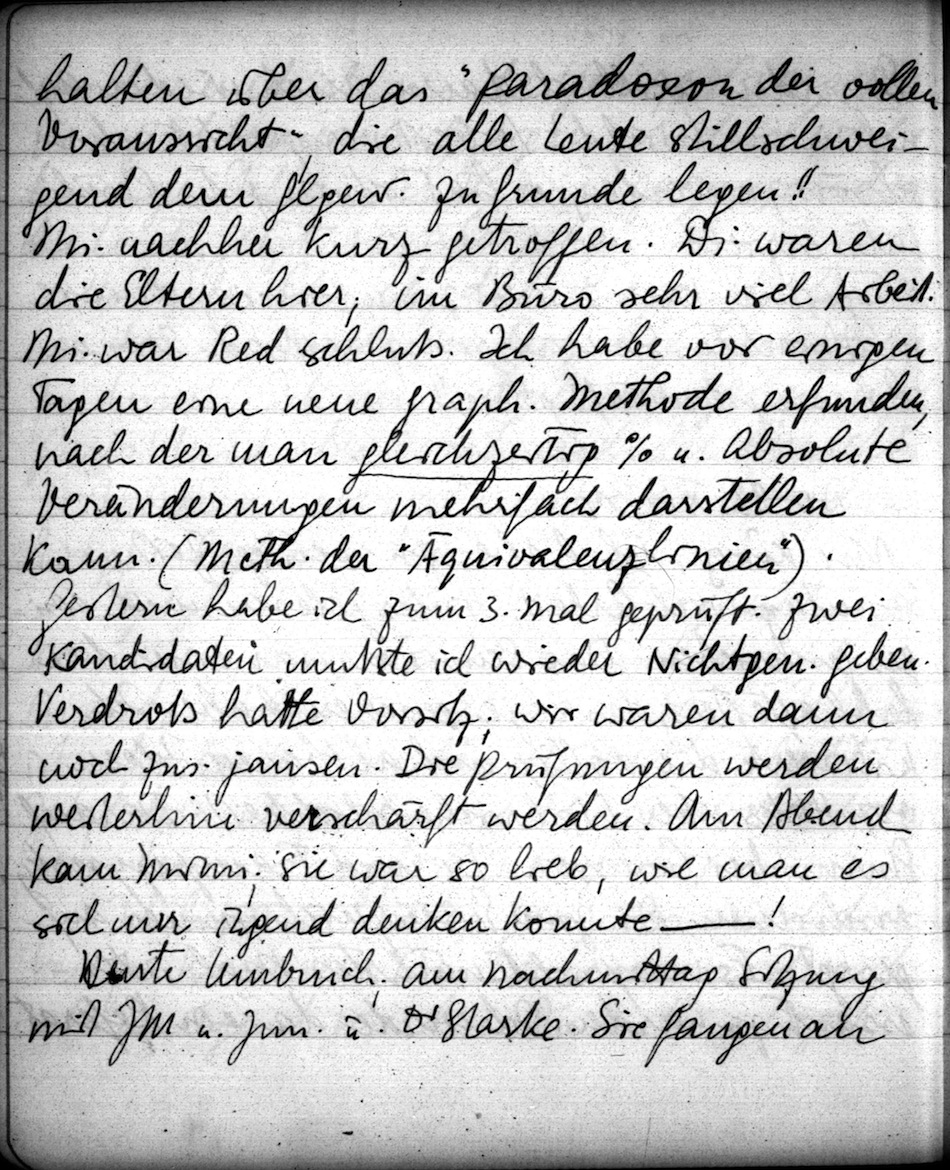 halten über das "Paradoxon der vollen
Voraussicht", die alle Leute stillschwei-
gend dem Glgew. zu Grunde legen!!
Mi. nachher kurz getroffen. Di. waren
die Eltern hier, im Büro sehr viel Arbeit.
Mi. war Redschluß. Ich habe vor einigen
Tagen eine neue graph. Methode erfunden,
nach der man gleichzeitig % u. Absolute
Veränderungen mehrfach darstellen
kann. (Meth. der "Äquivalenzlinien").
Gestern habe ich zum 3. mal geprüft. Zwei
Kandidaten mußte ich wieder Nichtgen. geben.
Verdroß hatte Vorsitz; wir waren dann
noch zus. jausen. Die Prüfungen werden
weiterhin verschärft werden. Am Abend
kam Mimi; sie war so lieb, wie man es
sich nur irgend denken konnte——!
Heute Umbruch; am Nachmittag Sitzung
mit JM u. Jun. u. Dr Starke. Sie fangen an